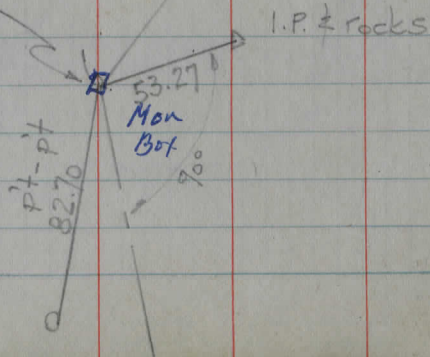 I.P. & rocks
53.27
Mon
Box
90°
p't-p't
82.70